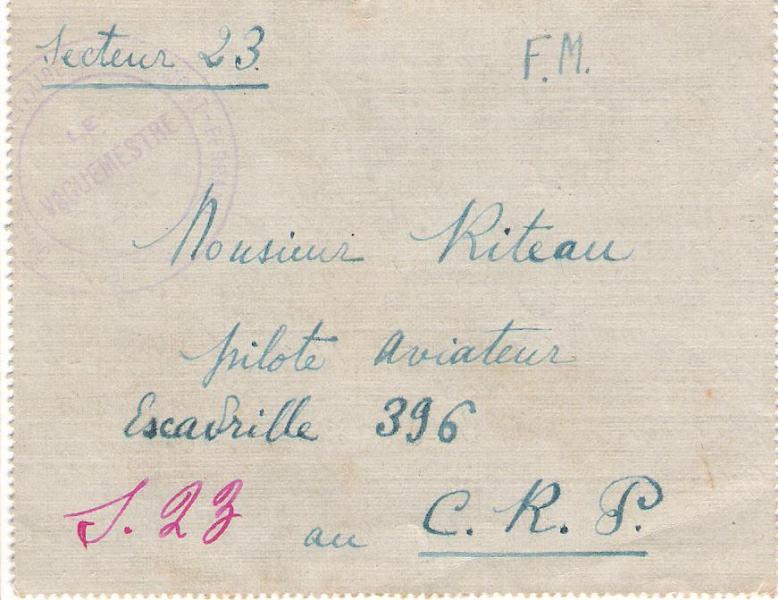 Secteur 23.
F.M.
LE
VAGUEMESTRE
Monsieur Riteau
pilote aviateur
Escadrille 396
S. 23 au C. R. P.